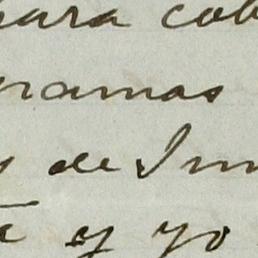 para cob
ramas
de Inm
y yo